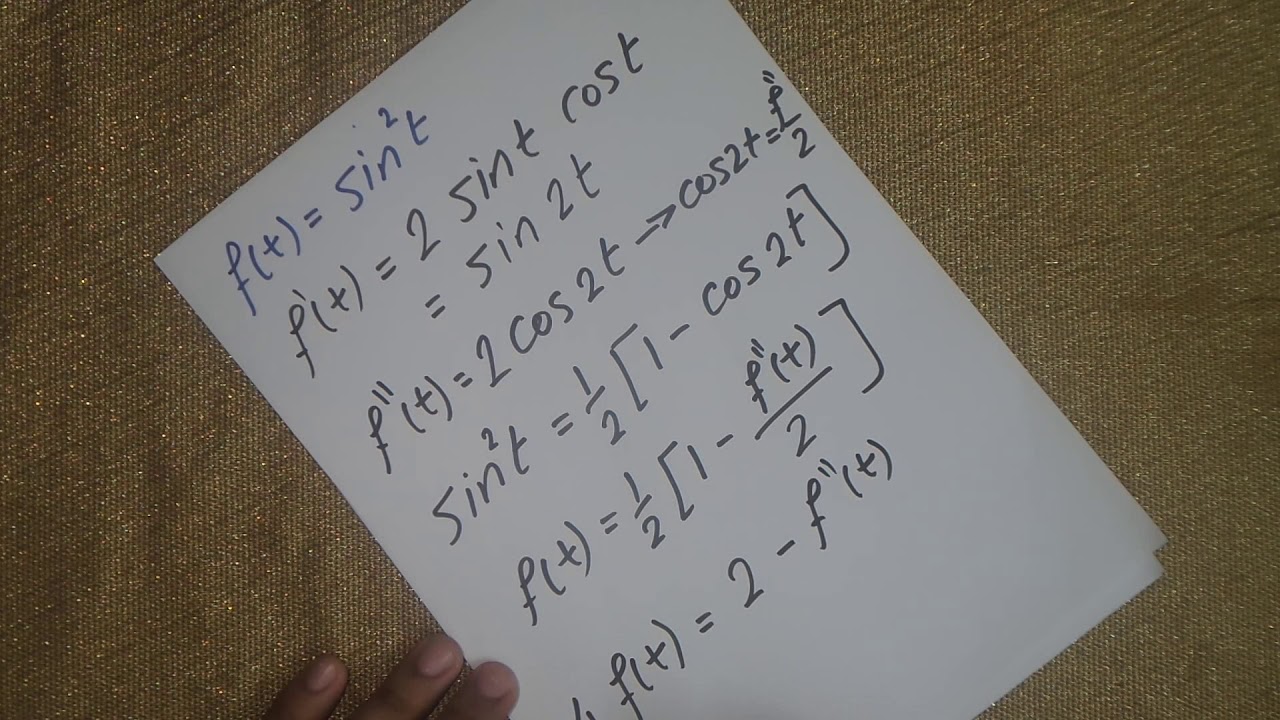 f(t) = sin²t
f'(t) = 2 sint cost
= sin 2t
f''(t) = 2 cos 2t → cos2t = f''/2
sin²t = 1/2 [1 - cos 2t]
f(t) = 1/2 [1 - f''(t)/2]
4 f(t) = 2 - f''(t)